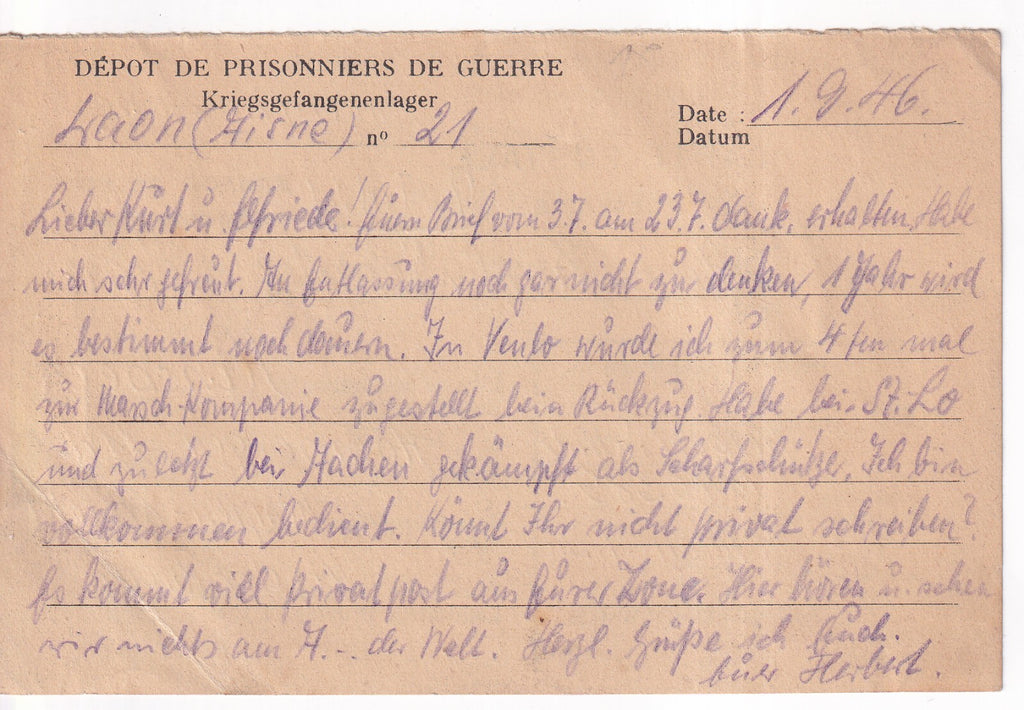 DÉPOT DE PRISONNIERS DE GUERRE
Kriegsgefangenenlager
Laon (Aisne) nº 21
Date : 1.9.46.
Datum
Lieber Kurt u. Elfriede! Euern Brief vom 3.7. am 23.7. dank. erhalten. Habe
mich sehr gefreut. An Entlassung noch gar nicht zu denken, 1 Jahr wird
es bestimmt noch dauern. In Venlo wurde ich zum 4ten mal
zur Marsch-Kompanie zugestellt beim Rückzug. Habe bei St. Lo
und zuletzt bei Aachen gekämpft als Scharfschütze. Ich bin
vollkommen bedient. Könnt Ihr nicht privat schreiben?
Es kommt viel Privatpost aus Eurer Zone. Hier hören u. sehen
wir nichts am A.-. der Welt. Herzl. Grüße ich Euch.
Euer Herbert.